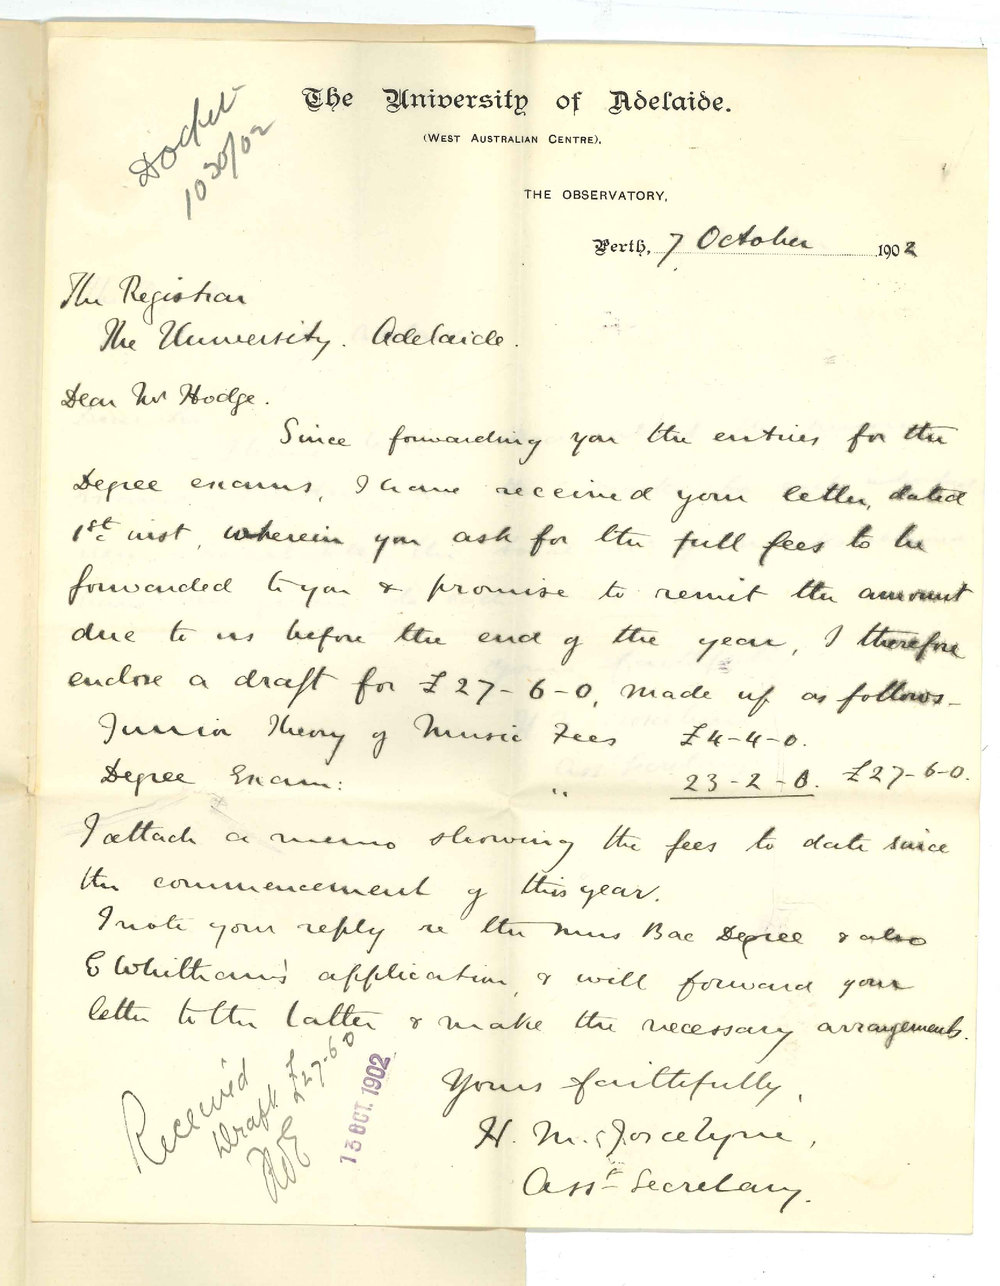 Docket
1030/02
The University of Adelaide.
(WEST AUSTRALIAN CENTRE).
THE OBSERVATORY,
Perth, 7 October 1902
The Registrar
The University. Adelaide.
Dear Mr Hodge.
Since forwarding you the entries for the
Degree exams, I have received your letter, dated
1st inst, wherein you ask for the full fees to be
forwarded to you & promise to remit the amount
due to us before the end of the year, I therefore
enclose a draft for £27-6-0, made up as follows-
Junior Theory of Music Fees £4-4-0.
Degree Exam: " 23-2-0. £27-6-0.
I attach a memo showing the fees to date since
the commencement of this year.
I note your reply re the Mus Bac Degree & also
E Whitham's application, & will forward your
letter to the latter & make the necessary arrangements.
Yours faithfully,
H. M. Joscelyne,
Asst Secretary.
Received
Draft £
27-6-0
13 OCT. 1902